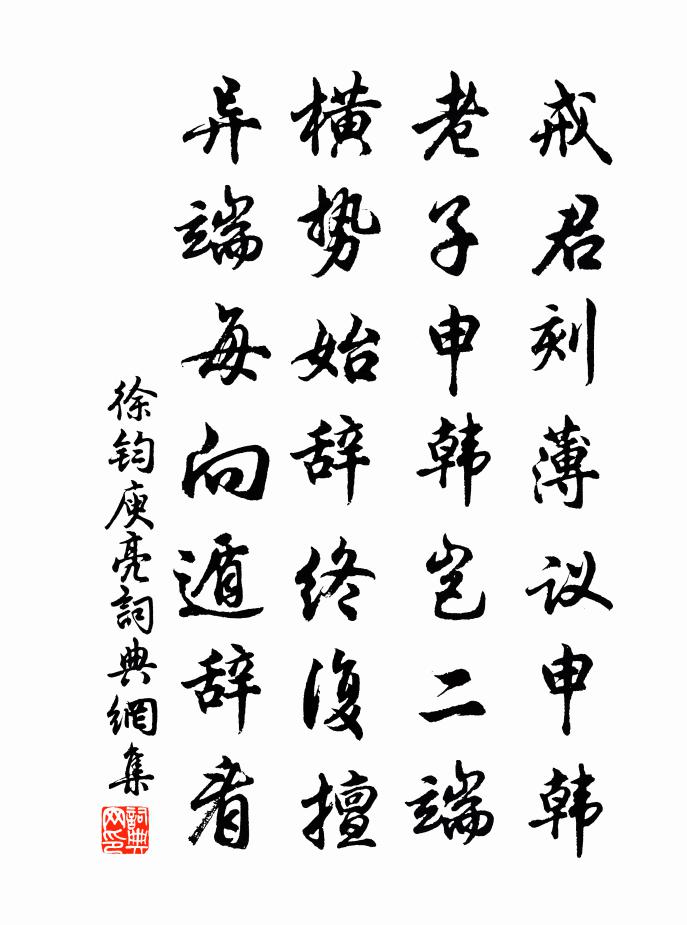 戒君刻薄议申韩
老子申韩岂二端
横势始辞终复擅
异端每向遁辞看
徐钧庾亮詞典網集
詞典网印